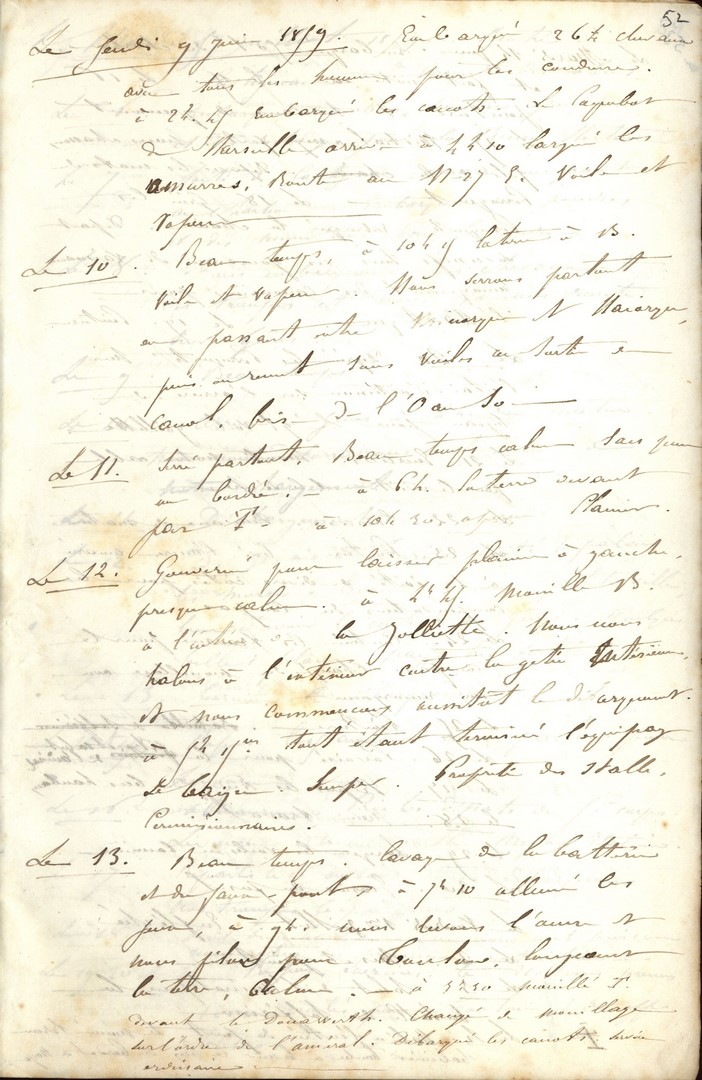 52
Le Jeudi 9 juin 1859. Embarqué 26 chevaux
avec tous les hommes pour les conduire.
à 2h. 45 Embarqué les canots. Le Paquebot
de Marseille arrive à 4h 10 largué les
amarres. Route au N 27 E. Voile et
Vapeur
Le 10. Beau temps, à 10h 45 la terre à B.
Voile et Vapeur. Nous serrons partout
en passant entre Minorque et Maiorque,
puis on remet sous Voiles au Sortir
canal. brise de l'O au So
Le 11. Serré partout. Beau temps calme
au bordée. à 6h. la terre devant
par T à 10h 30 Planier.
Le 12. Gouverné pour laisser planier à gauche,
presque calme. à 2h 45 Mouillé B.
à l'entrée la Jolliette. Nous nous
halons à l'intérieur contre la getée Extérieure,
et nous commencons aussitôt le débarquement.
à 5h 45m tout étant terminé l'équipage
Se Souper. Propreté des Stalle,
Permissionnaires.
Le 13. Beau temps. lavage de la batterie
et du faux-pont à 7h 10 allumé les
feux, à 9h. nous levons l'ancre et
nous filons pour Toulon, longeant
la terre, Calme. à 3h 30 mouillé T.
devant le Donawerth. Changé de mouillage
sur l'ordre de l'amiral. Débarqué les canots
ordinaire